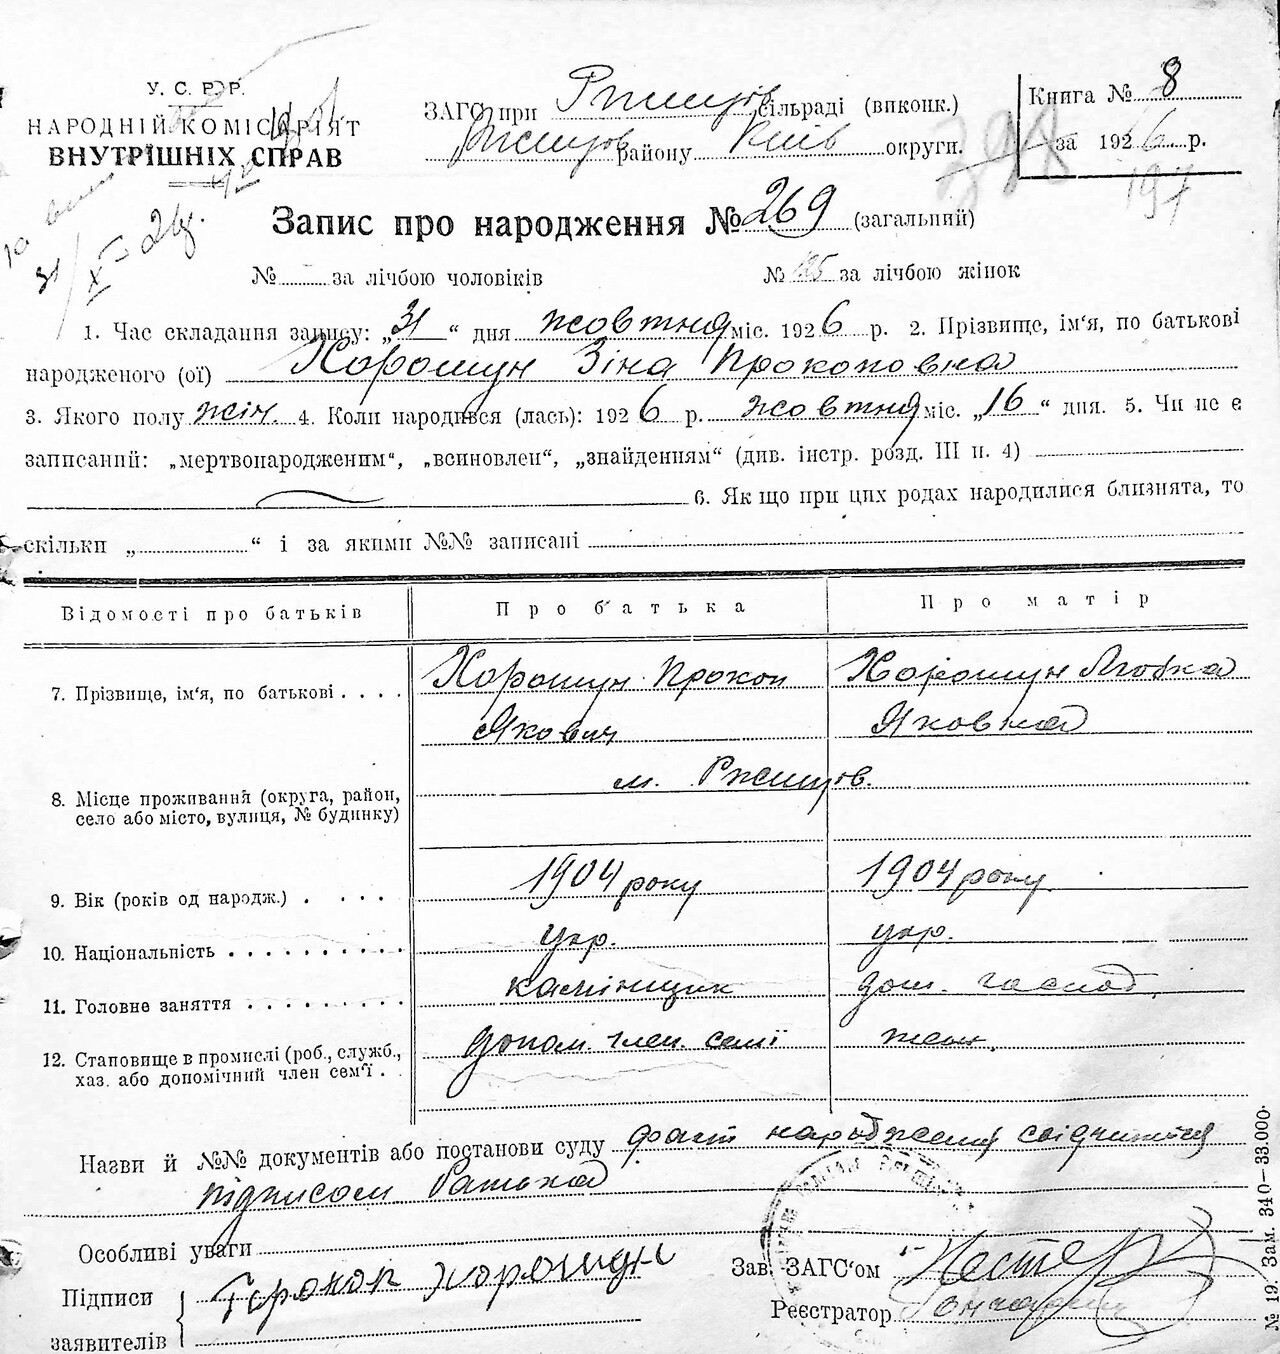 У. С. Р. Р.
НАРОДНІЙ КОМІСАРІЯТ
ВНУТРІШНІХ СПРАВ
ЗАГС при Ржищів сільраді (виконк.)
Ржищов району Київ округи.
Книга № 8
за 1926 р.
398
197
Запис про народження № 269 (загальний)
№ за лічбою чоловіків № 125 за лічбою жінок
1. Час складання запису: „31“ дня жовтня міс. 1926 р. 2. Прізвище, ім‘я, по батькові
народженого (ої) Хорошун Зіна Прокоповна
3. Якого полу жін. 4. Коли народився (лась): 1926 р. жовтня міс. „16“ дня. 5. Чи не є
записаний: „мертвонародженим“, „всиновлен“, „знайденням“ (див. інстр. розд. III п. 4)
6. Як що при цих родах народилися близнята, то
скільки „ “ і за якими №№ записані
Відомості про батьків Про батька Про матір
7. Прізвище, ім‘я, по батькові . . . . Хорошун Прокоп Хорошун Любка
Якович Яковна
8. Місце проживання (округа, район,
село або місто, вулиця, № будинку) м. Ржищов.
9. Вік (років од народж.) . . . . . 1904 року 1904 року.
10. Національність . . . . . . . . . . укр. укр.
11. Головне заняття . . . . . . . . . камінщик дом. господ.
12. Становище в промислі (роб., служб.,
хаз. або допомічний член сем‘ї . . допом. член. семї жен.
Назви й №№ документів або постанови суду факт народження свідчиться
підписом батька
Особливі уваги
Підписи
заявителів Прокоп Хорошун
Зав. ЗАГС‘ом
Реєстратор Гончарен
№ 19. Зам. 340—33.000.